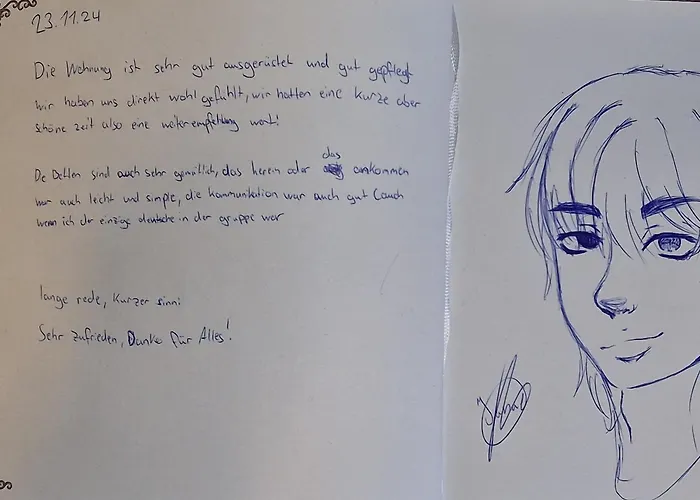 23.11.24
Die Wohnung ist sehr gut ausgerüstet und gut gepflegt
wir haben uns direkt wohl gefühlt, wir hatten eine kurze aber
schöne zeit also eine weiterempfehlung wert!
De Betten sind auch sehr gemütlich, das herein oder das ankommen
war auch lecht und simple, die kommunikation war auch gut (auch
wenn ich der einzige deutsche in der gruppe war
lange rede, kurzer sinn:
Sehr zufrieden, Danke für Alles!